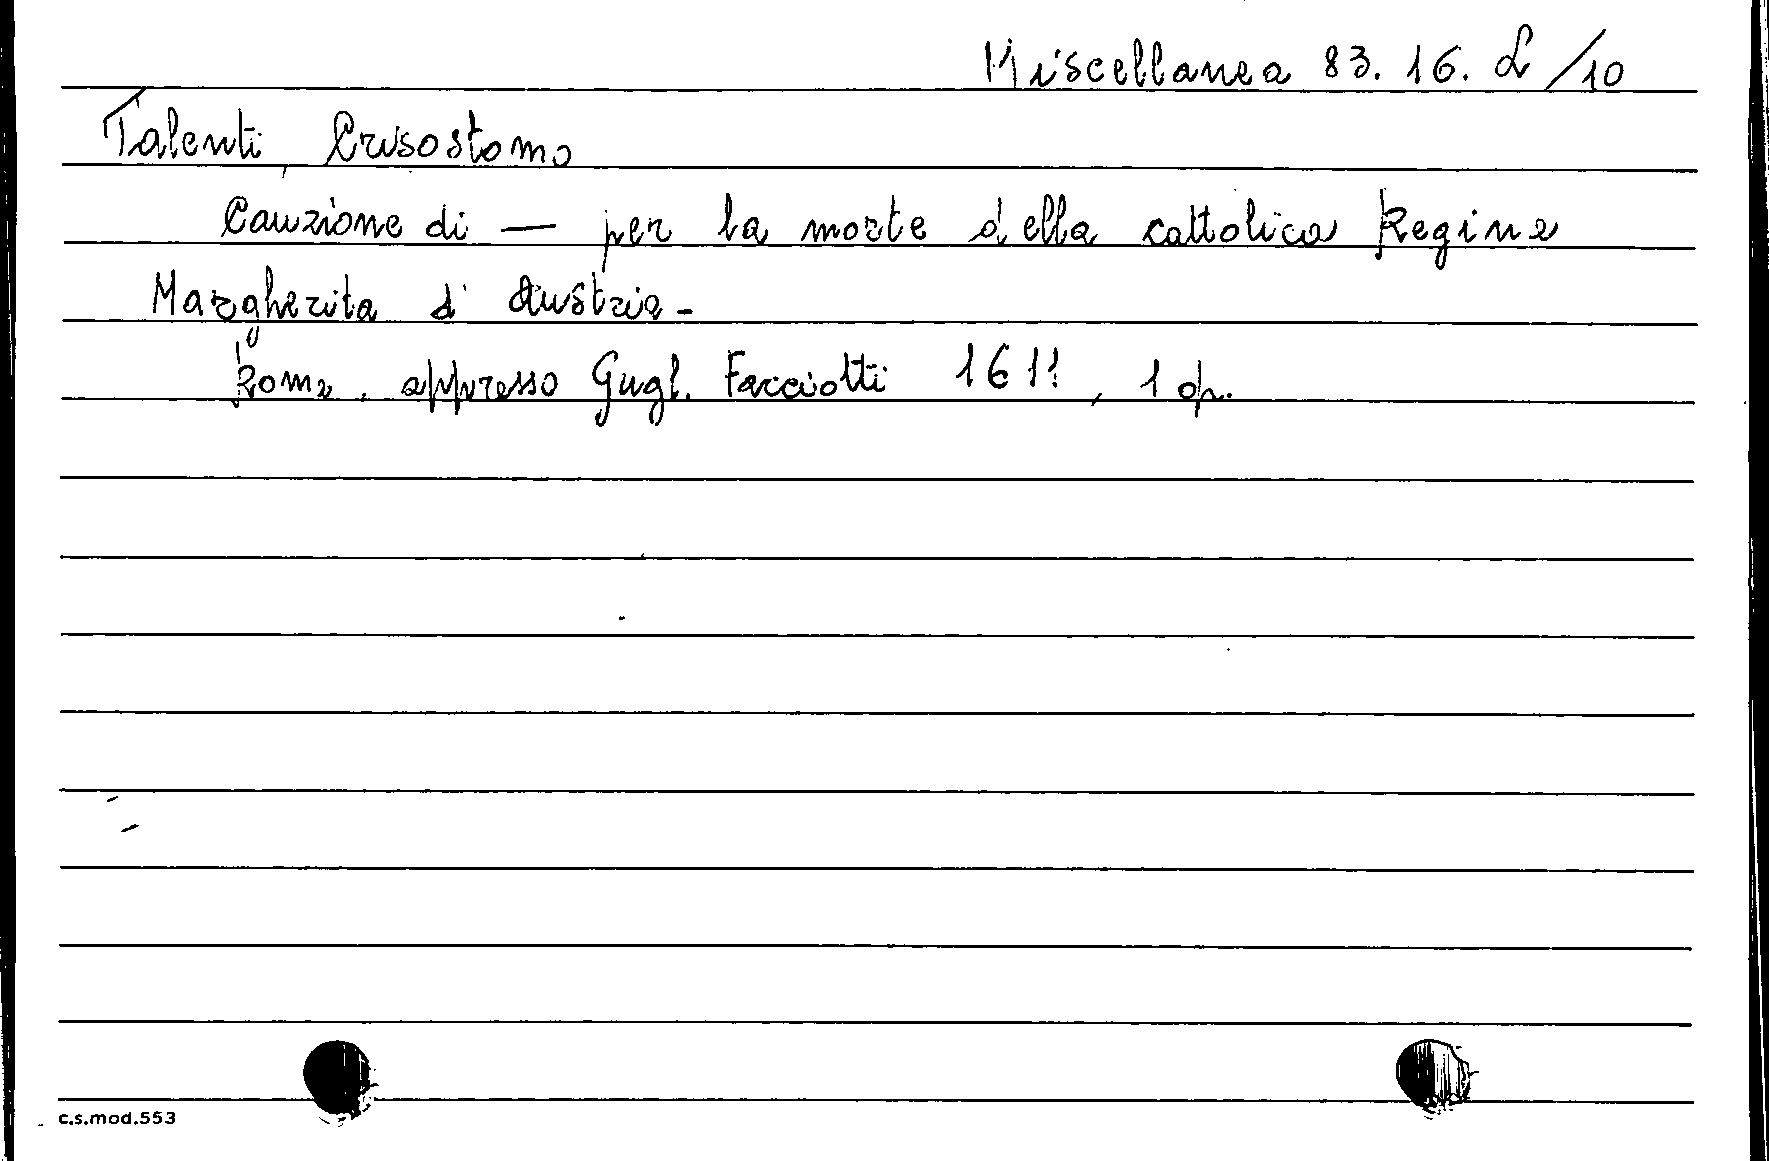 Miscellanea 83. 16. L /10
Talenti, Crisostomo
Canzione di — per la morte della cattolica Regina
Margherita d'Austria -
Roma, appresso Gugl. Facciotti 1611, 1 op.
c.s.mod.553